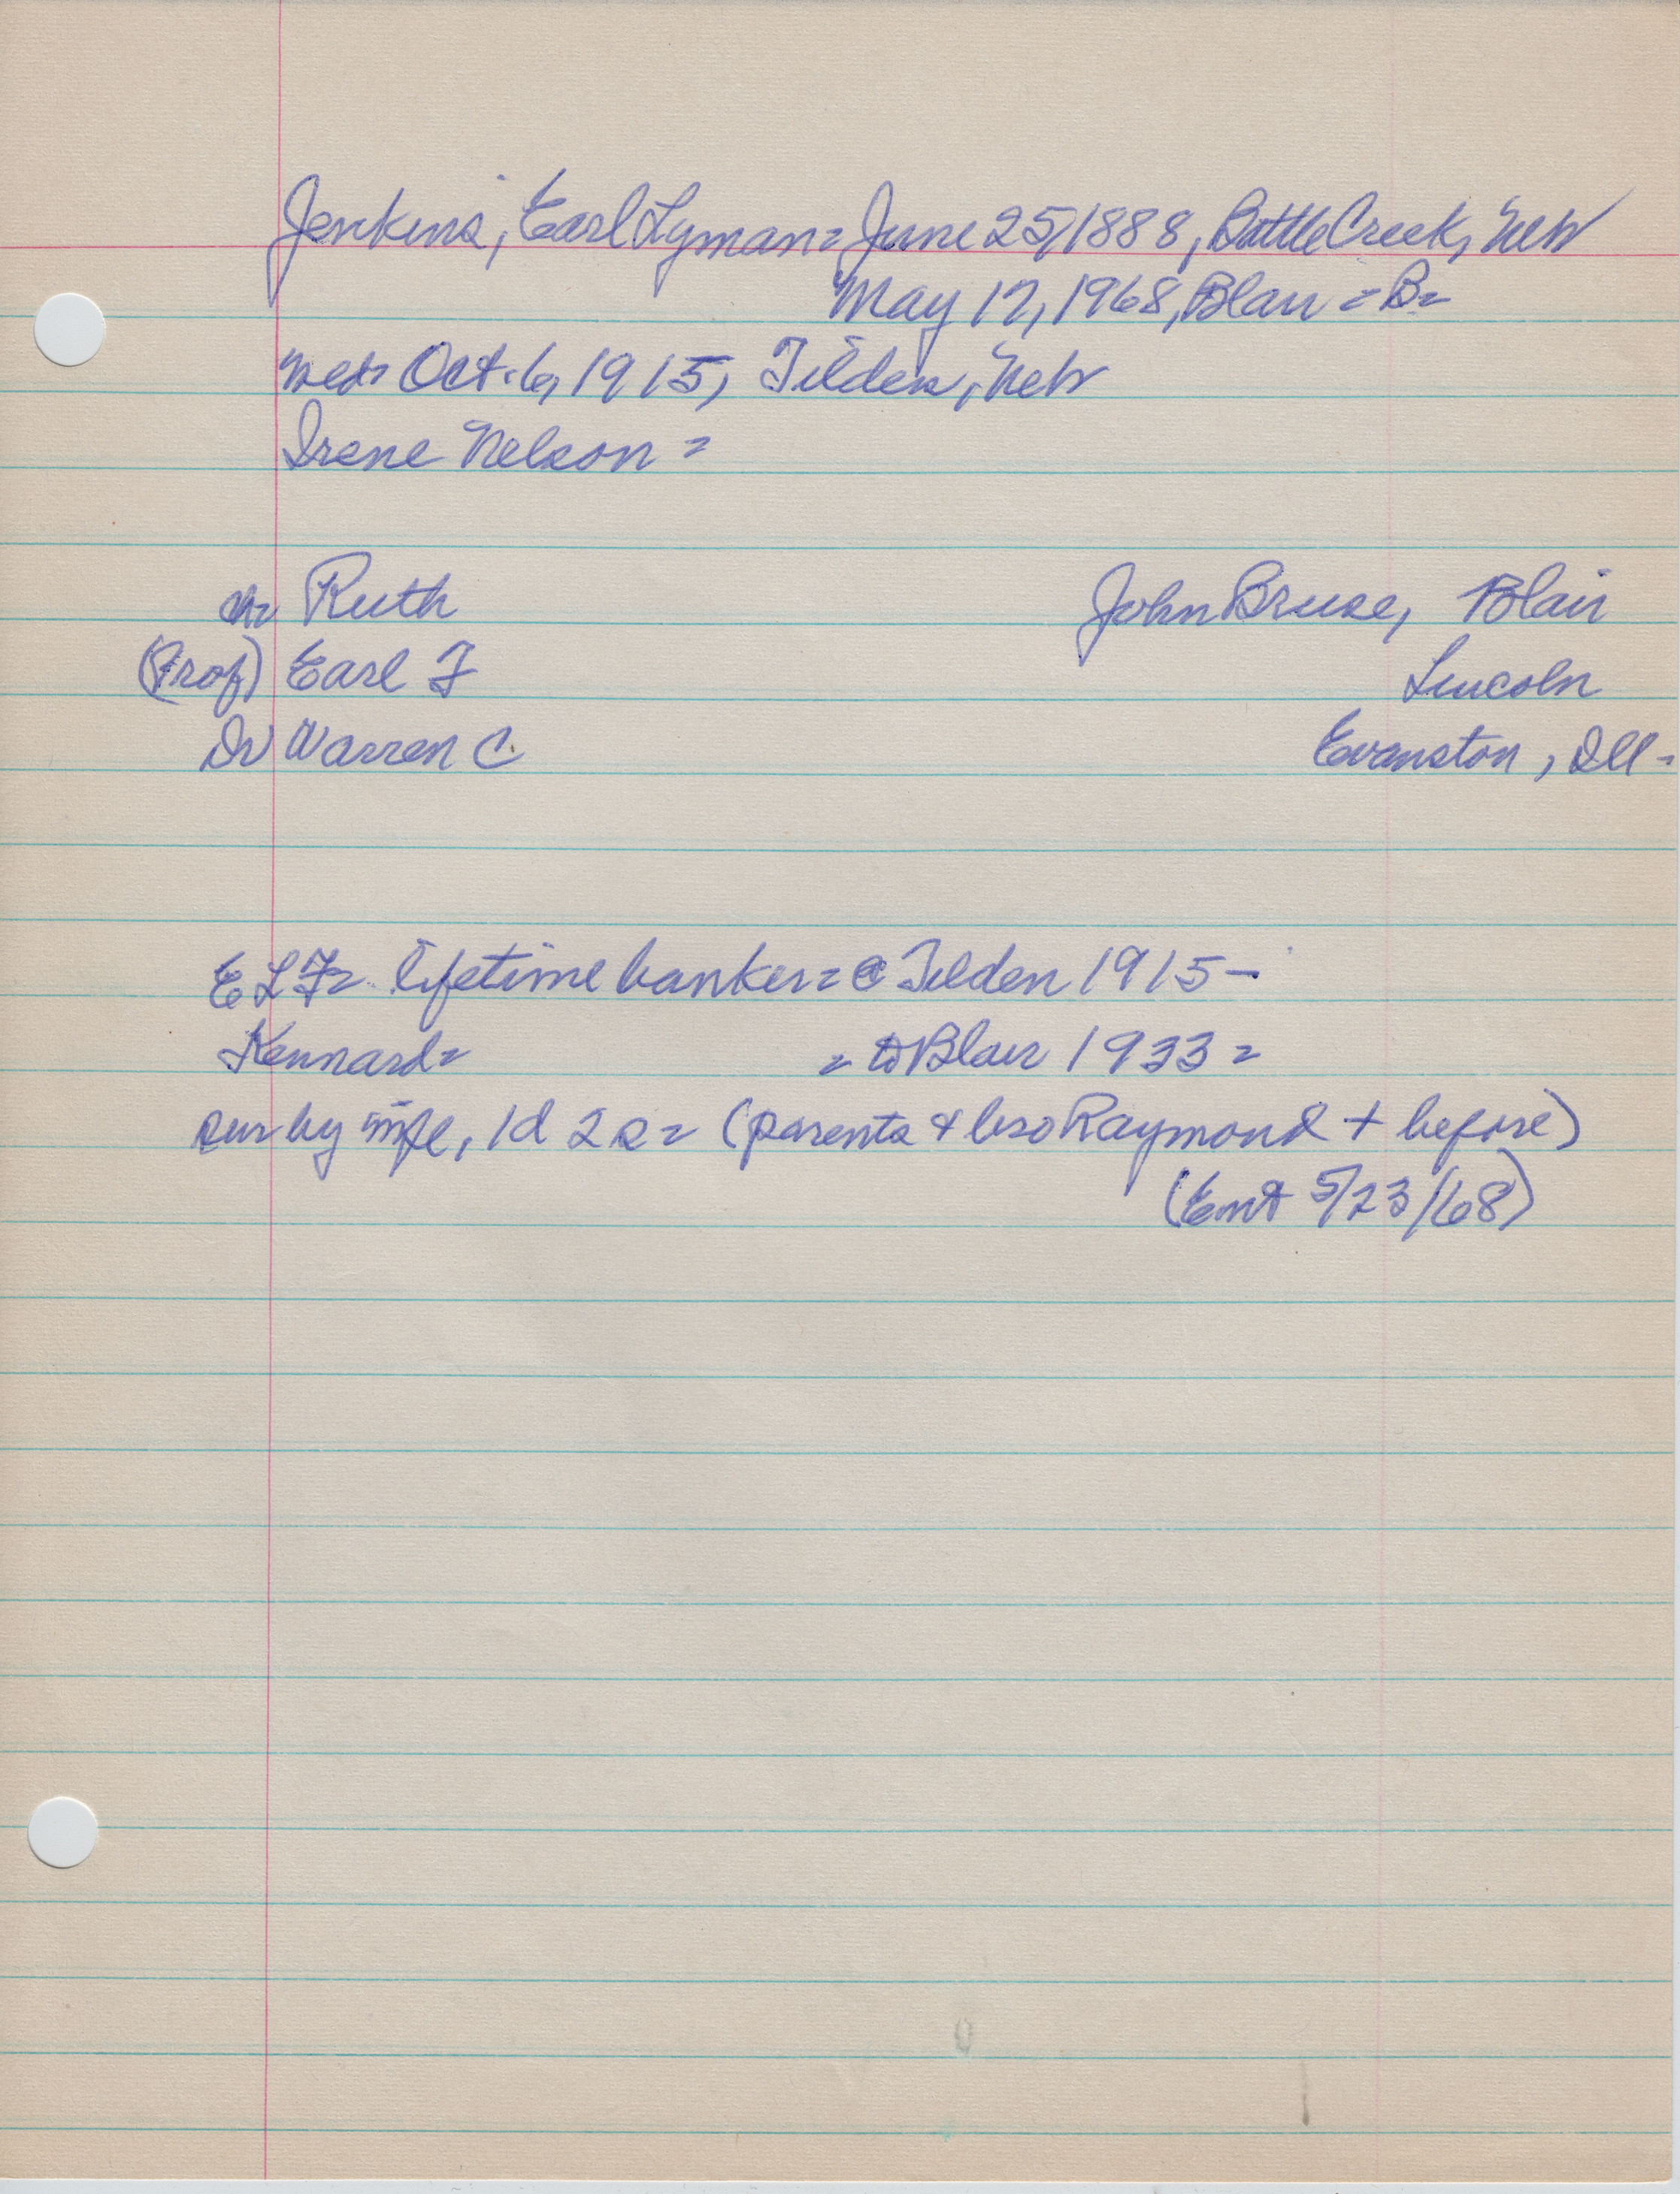 Jenkins, Earl Lyman= June 25, 1888, Battle Creek, Neb
May 17, 1968, Blair = B=
wed= Oct. 6, 1915, Tilden, Neb
Irene Nelson =
ch= Ruth John Bruse, Blair
(Prof) Earl J Lincoln
Dr Warren C. Evanston, Ill-
E L J= lifetime banker= @ Tilden 1915-
Kennard= = to Blair 1933 =
sur by wife, 1d 2s= (parents & bro Raymond + before)
(Ent 5/23/68)